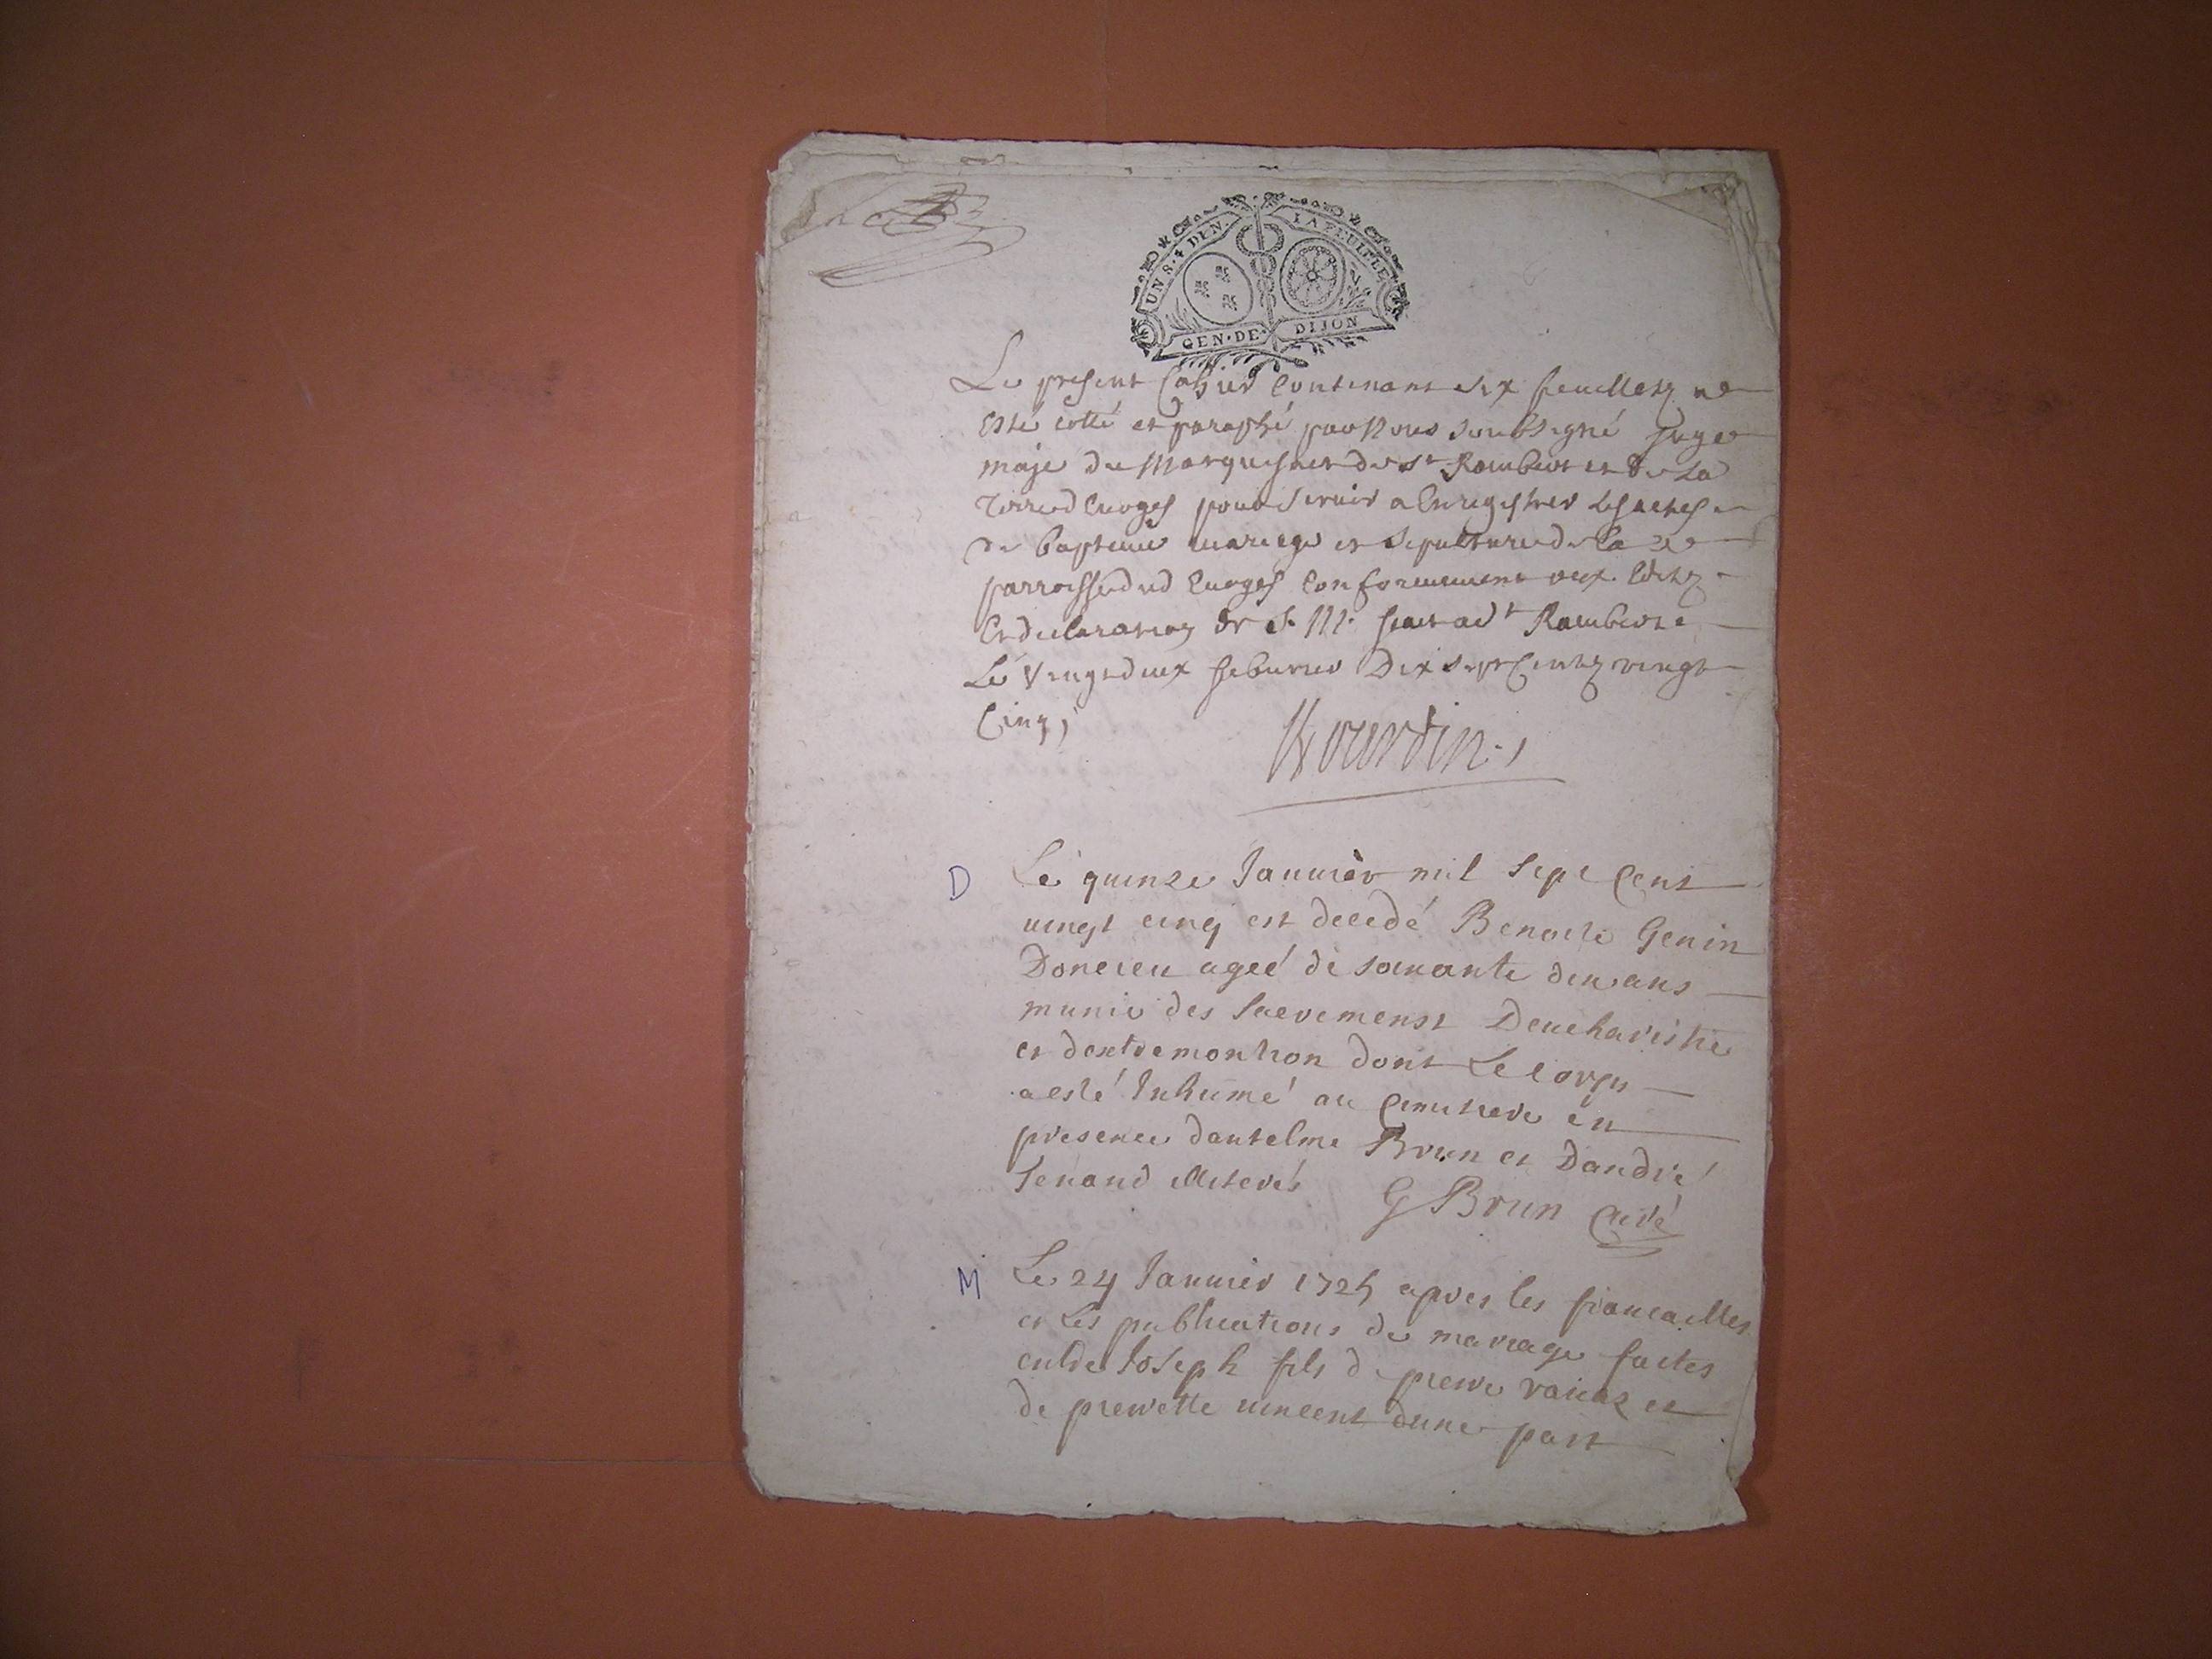 UN S. 4 DEN. LA FEUILLE
GEN. DE DIJON
Le present Cahier Contenant six feuilletz a
esté cotté et paraphé par Nous soubsigné Juge
maje du Marquisat de st Rambert et de La
Terre d Evoges pour servir a Enregistrer les actes
de bapteme mariage et sepulture de la
parroisse dud Evoges Conformement aux Editz
Et declaration de S. M. fait a st Rambert
Le Vingtdeux febvrier Dix sept Centz vingt
Cinq,
D
Le quinze Janvier mil sept Cent
vingt cinq est decedé Benoite Genin
Doncieu ageé de soixante dix ans
munie des Sacremenst Deucharistie
et dextremontion dont Le corps
a esté Inhumé au Cimitiere en
presence dantelme Brun et Dandré
Senand illiterés G Brun Curé
M
Le 24 Janvier 1725 apres les fiancailles
et Les publications de mariage faites
entre Joseph fils de pierre et
de pierrette vincent dune part